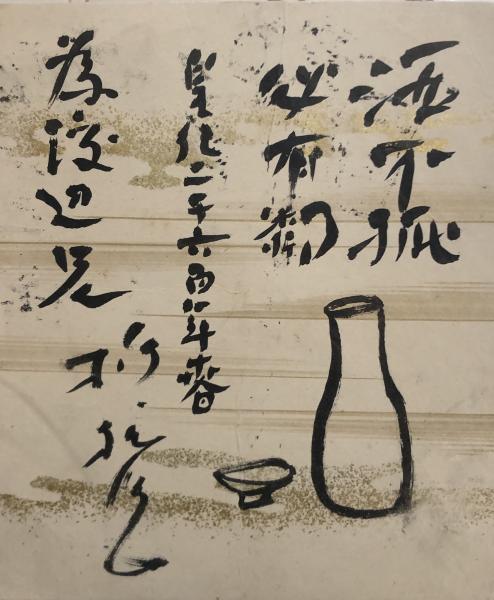 酒不孤
必有鄰
皇紀二千六百年春
為渡辺兄